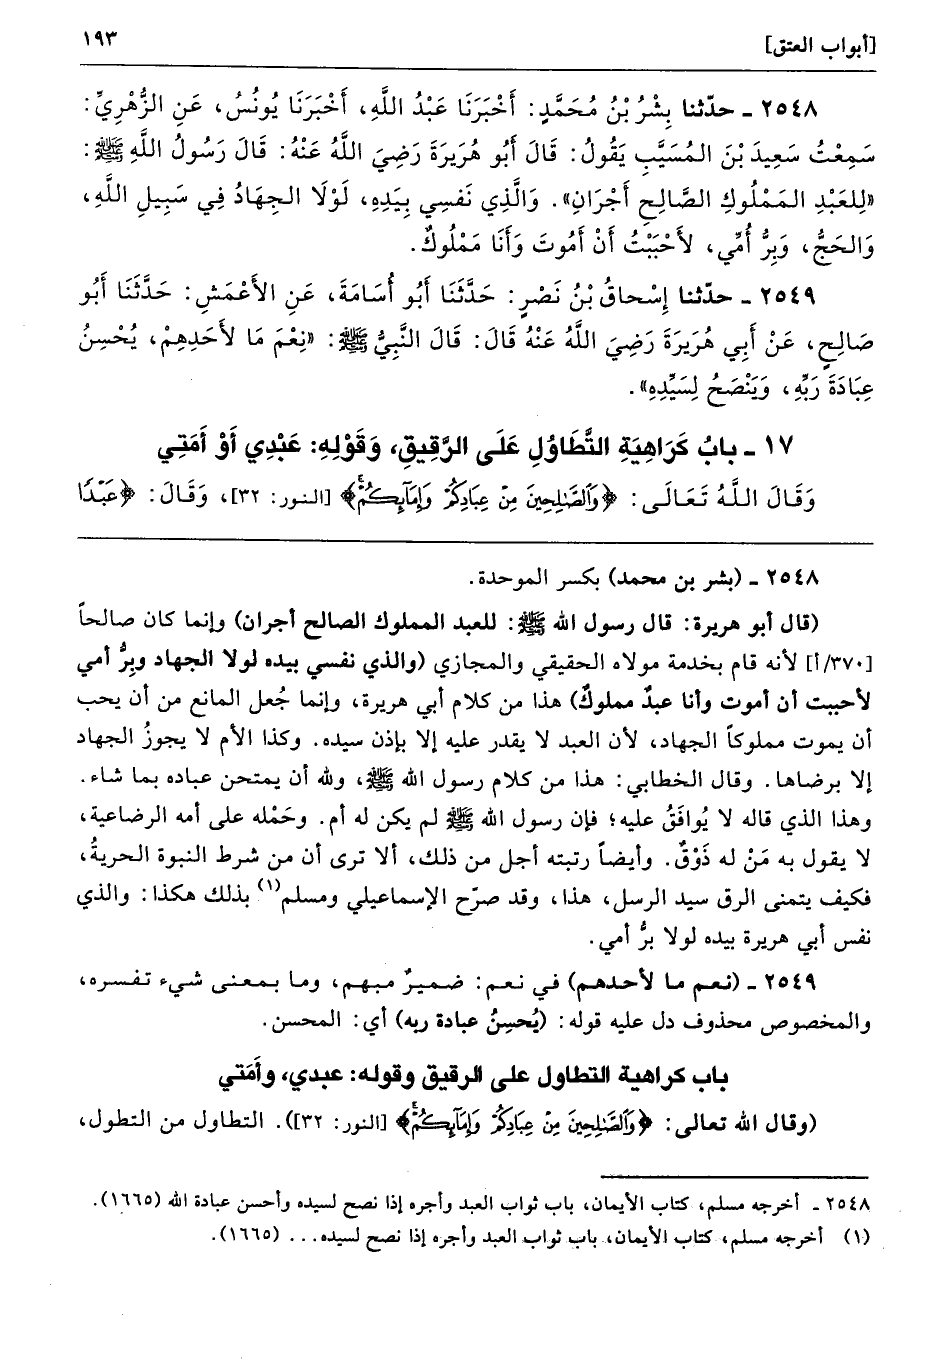 [أبواب العتق]
١٩٣
٢٥٤٨ ـ حدّثنا بِشْرُ بْنُ مُحَمَّدٍ: أَخْبَرَنَا عَبْدُ اللَّهِ، أَخْبَرَنَا يُونُسُ، عَنِ الزُّهْرِيِّ:
سَمِعْتُ سَعِيدَ بْنَ المُسَيَّبِ يَقُولُ: قَالَ أَبُو هُرَيرَةَ رَضِيَ اللَّهُ عَنْهُ: قَالَ رَسُولُ اللَّهِ ﷺ:
«لِلعَبْدِ المَمْلُوكِ الصَّالِحِ أَجْرَانِ». وَالَّذِي نَفْسِي بِيَدِهِ، لَوْلَا الجِهَادُ فِي سَبِيلِ اللَّهِ،
وَالحَجُّ، وَبِرُّ أُمِّي، لأَحْبَبْتُ أَنْ أَمُوتَ وَأَنَا مَمْلُوكٌ.
٢٥٤٩ ـ حدّثنا إِسْحاقُ بْنُ نَصْرٍ: حَدَّثَنَا أَبُو أُسَامَةَ، عَنِ الأَعْمَشِ: حَدَّثَنَا أَبُو
صَالِحٍ، عَنْ أَبِي هُرَيرَةَ رَضِيَ اللَّهُ عَنْهُ قَالَ: قَالَ النَّبِيُّ ﷺ: «نِعْمَ مَا لأَحَدِهِمْ، يُحْسِنُ
عِبَادَةَ رَبِّهِ، وَيَنْصَحُ لِسَيِّدِهِ».
١٧ ـ بابُ كَرَاهِيَةِ التَّطَاوُلِ عَلَى الرَّقِيقِ، وَقَوْلِهِ: عَبْدِي أَوْ أَمَتِي
وَقَالَ اللَّهُ تَعَالَى: ﴿وَٱلصَّٰلِحِينَ مِنْ عِبَادِكُمْ وَإِمَآئِكُمْۚ﴾ [النور: ٣٢]، وَقَالَ: ﴿عَبْدًا
٢٥٤٨ ـ (بشر بن محمد) بكسر الموحدة.
(قال أبو هريرة: قال رسول الله ﷺ: للعبد المملوك الصالح أجران) وإنما كان صالحاً
[٣٧٠/أ] لأنه قام بخدمة مولاه الحقيقي والمجازي (والذي نفسي بيده لولا الجهاد وبِرُّ أمي
لأحببت أن أموت وأنا عبدٌ مملوكٌ) هذا من كلام أبي هريرة، وإنما جُعل المانع من أن يحب
أن يموت مملوكاً الجهاد، لأن العبد لا يقدر عليه إلا بإذن سيده. وكذا الأم لا يجوزُ الجهاد
إلا برضاها. وقال الخطابي: هذا من كلام رسول الله ﷺ، ولله أن يمتحن عباده بما شاء.
وهذا الذي قاله لا يُوافَقُ عليه؛ فإن رسول الله ﷺ لم يكن له أم. وحَمْله على أمه الرضاعية،
لا يقول به مَنْ له ذَوْقٌ. وأيضاً رتبته أجل من ذلك، ألا ترى أن من شرط النبوة الحريةُ،
فكيف يتمنى الرق سيد الرسل، هذا، وقد صرّح الإسماعيلي ومسلم(١) بذلك هكذا: والذي
نفس أبي هريرة بيده لولا برُّ أمي.
٢٥٤٩ ـ (نعم ما لأحدهم) في نعم: ضميرٌ مبهم، وما بمعنى شيء تفسره،
والمخصوص محذوف دل عليه قوله: (يُحسِنُ عبادة ربه) أي: المحسن.
باب كراهية التطاول على الرقيق وقوله: عبدي، وأَمَتي
(وقال الله تعالى: ﴿وَٱلصَّٰلِحِينَ مِنْ عِبَادِكُمْ وَإِمَآئِكُمْۚ﴾ [النور: ٣٢]). التطاول من التطول،
٢٥٤٨ ـ أخرجه مسلم، كتاب الأيمان، باب ثواب العبد وأجره إذا نصح لسيده وأحسن عبادة الله (١٦٦٥).
(١) أخرجه مسلم، كتاب الأيمان، باب ثواب العبد وأجره إذا نصح لسيده... (١٦٦٥).